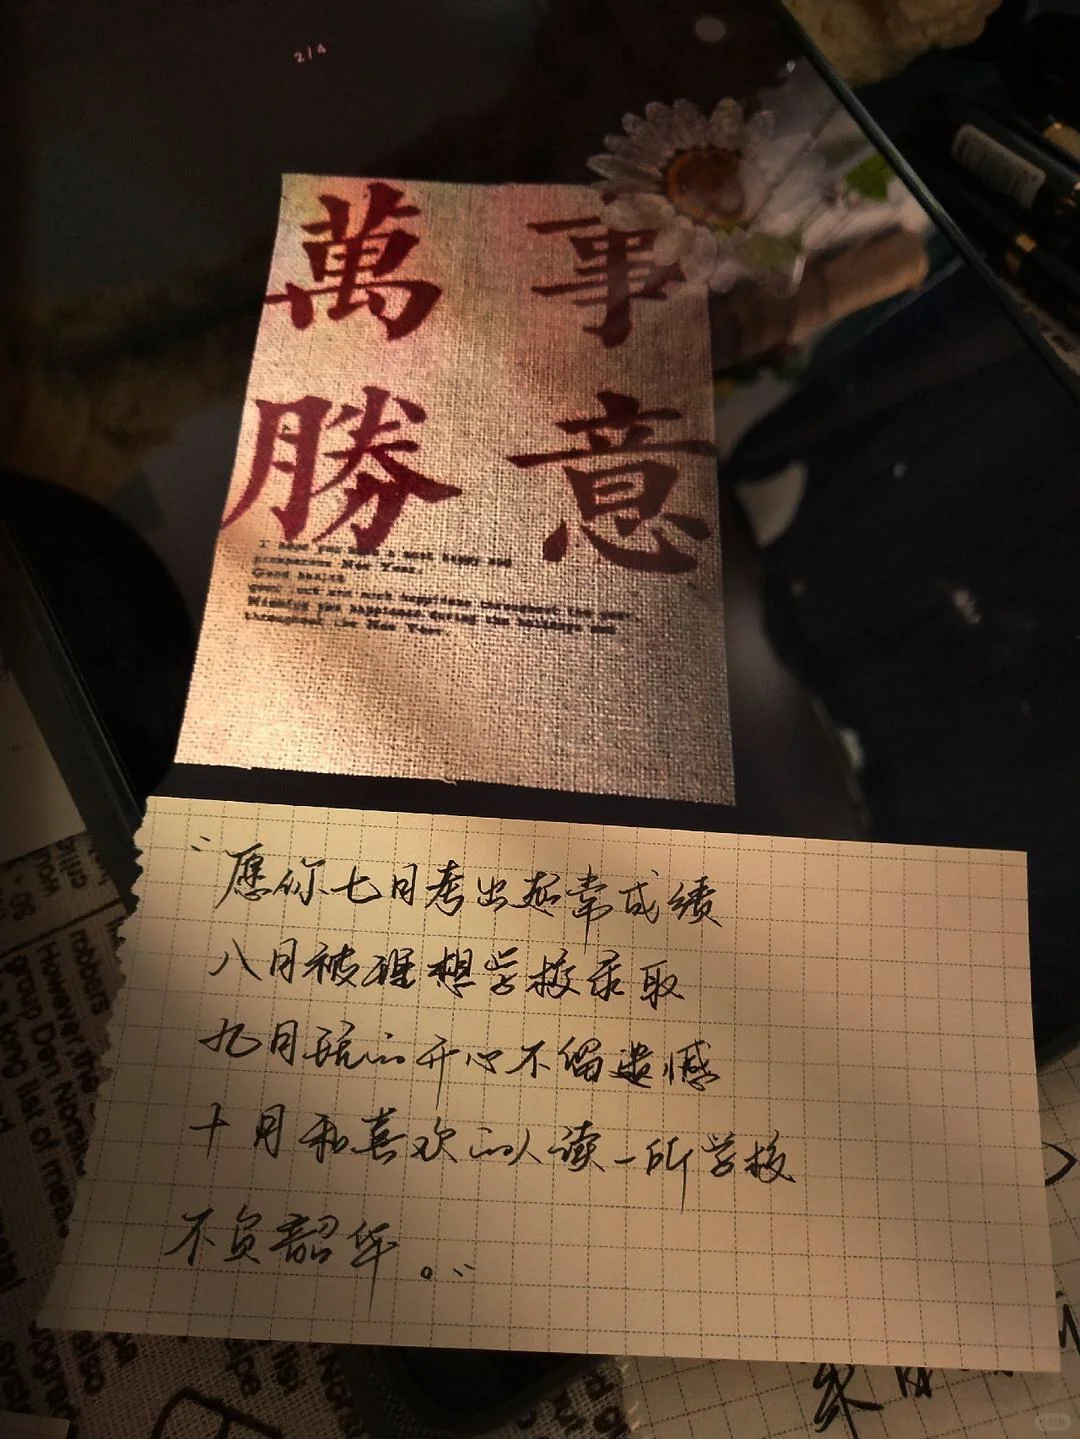 2/4
萬事
勝意
I hope you have a most happy and
prosperous New Year.
Good health
good luck and much happiness throughout the year.
Wishing you happiness during the holidays and
throughout the New Year.
“愿你七月考出超常成绩
八月被理想学校录取
九月玩的开心不留遗憾
十月和喜欢的人读一所学校
不负韶华。”
robbers
However, the
group Den Norske
s a long list of
also